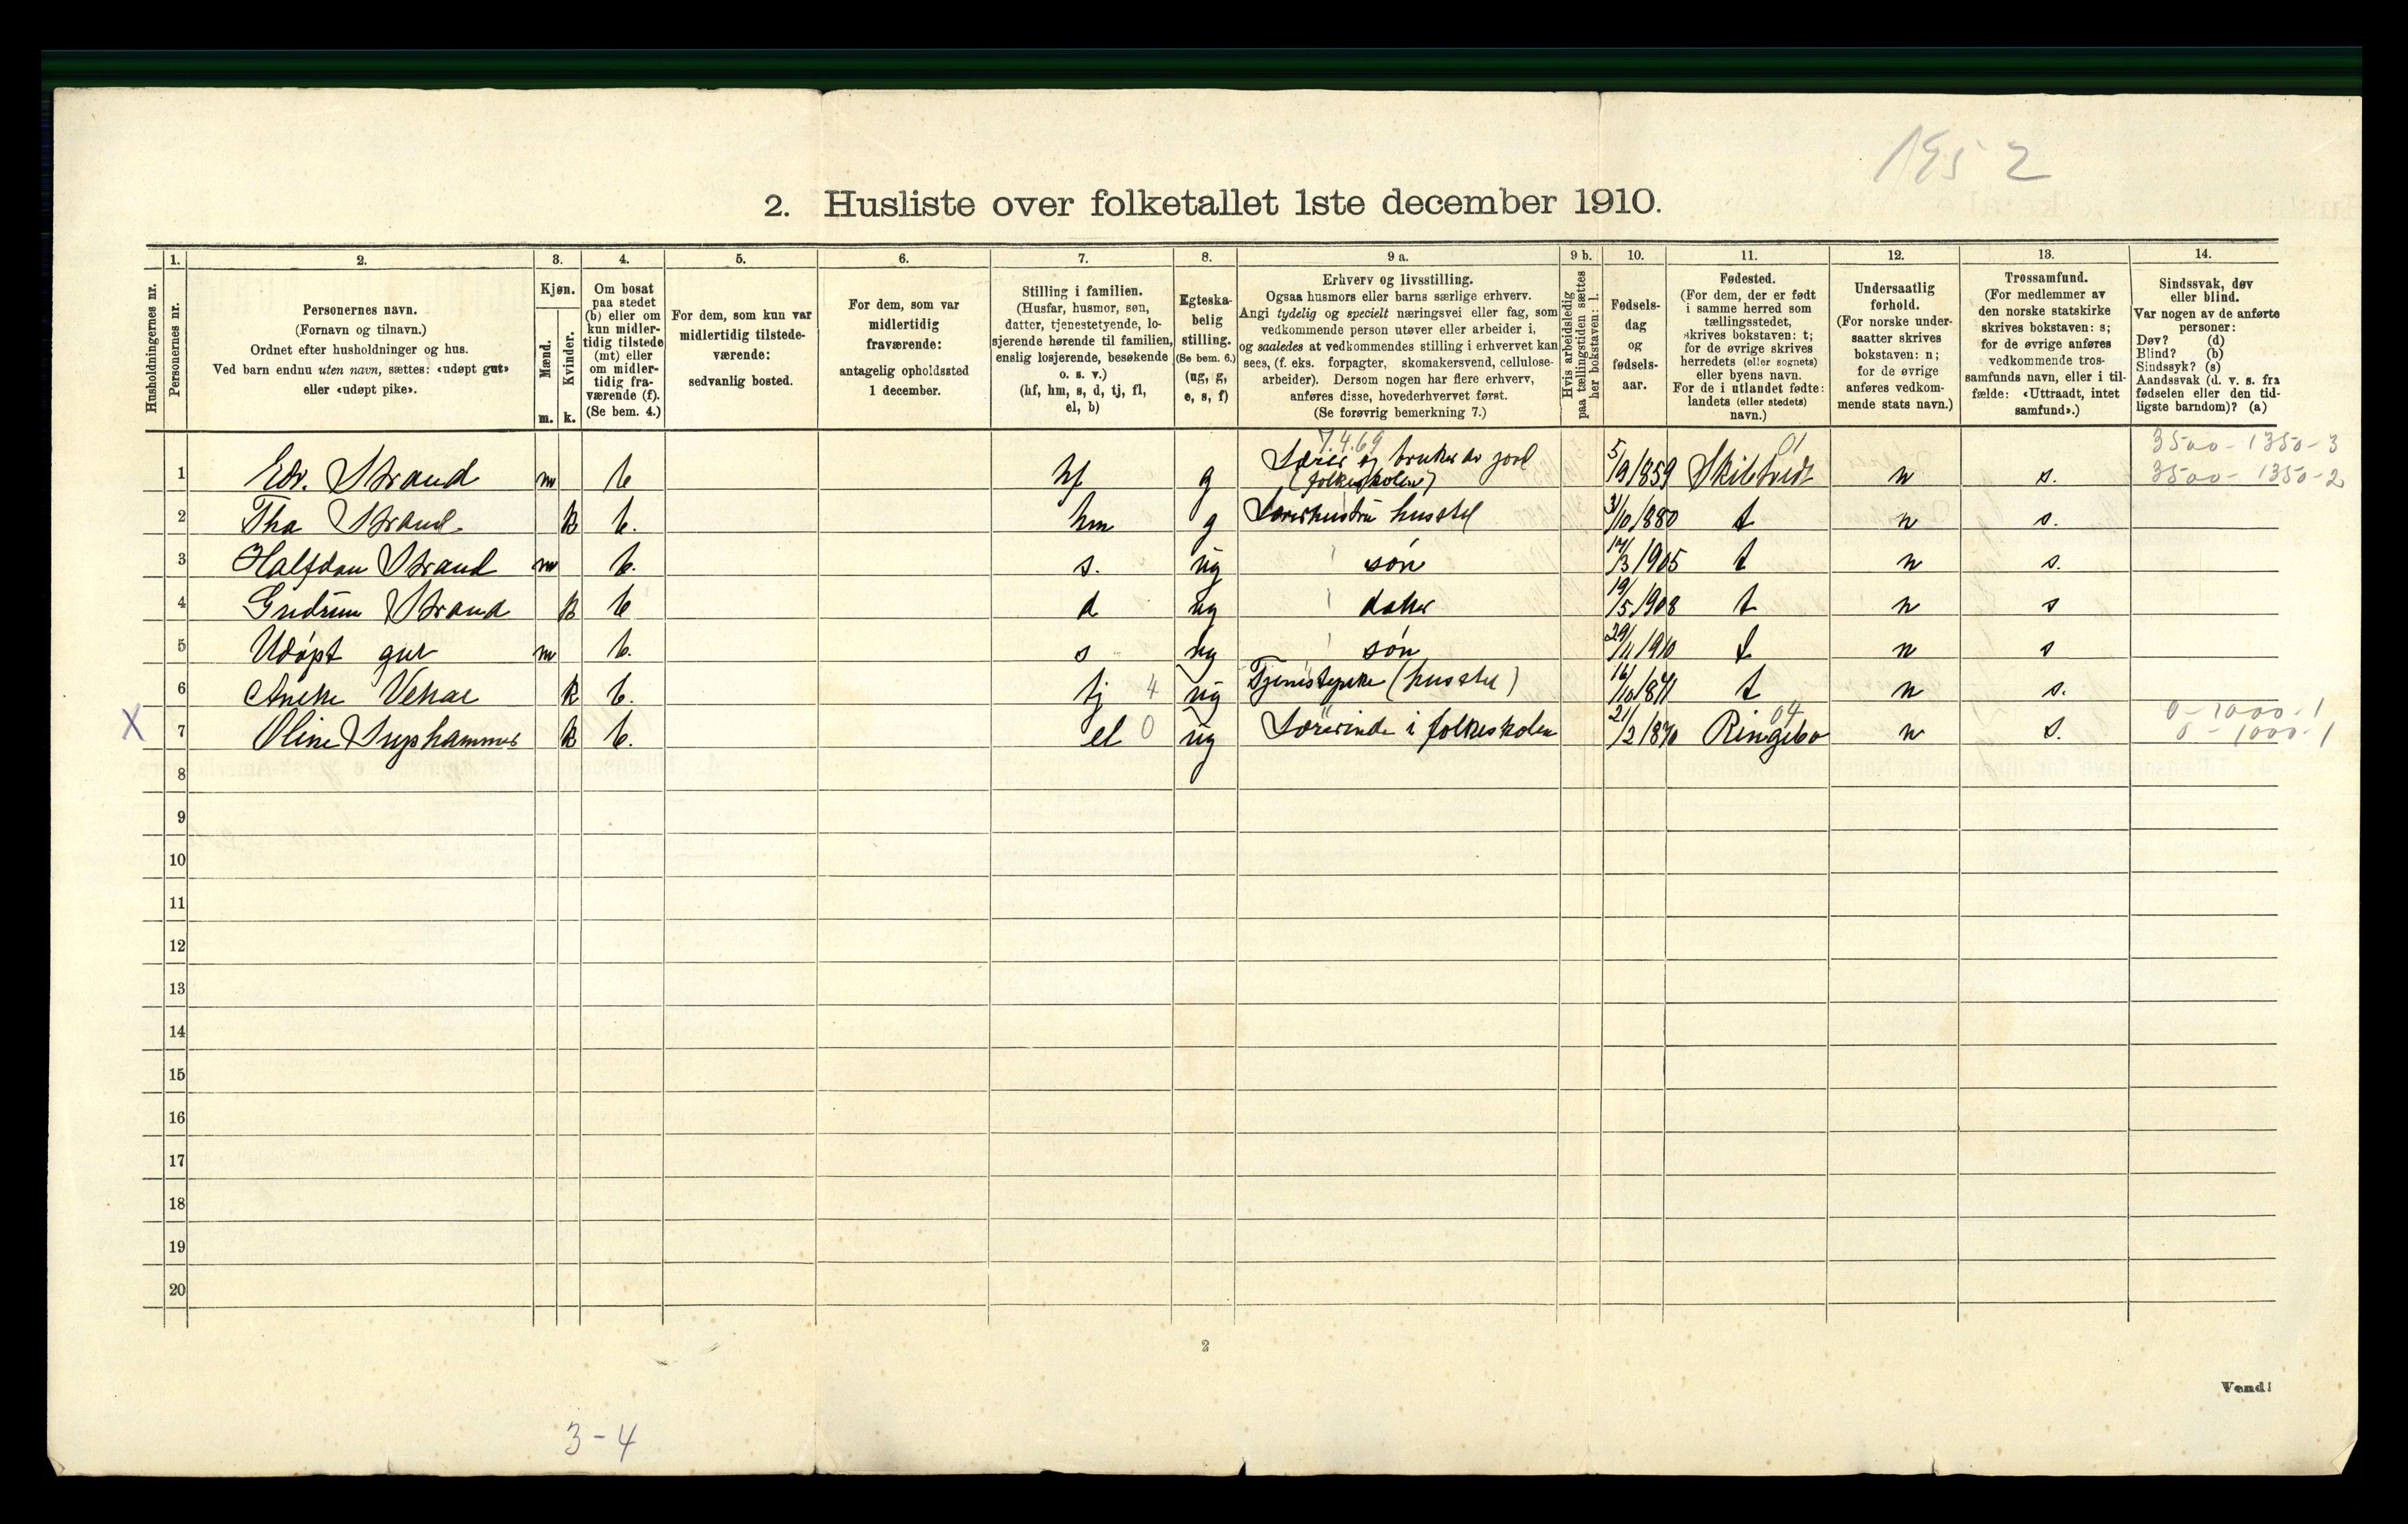 1952
2. Husliste over folketallet 1ste december 1910.
Husholdningernes nr.
1.
Personernes nr.
2.
Personernes navn.
(Fornavn og tilnavn.)
Ordnet efter husholdninger og hus.
Ved barn endnu uten navn, sættes: «udøpt gut»
eller «udøpt pike».
3.
Kjøn.
Mænd.
m.
Kvinder.
k.
4.
Om bosat
paa stedet
(b) eller om
kun midler-
tidig tilstede
(mt) eller
om midler-
tidig fra-
værende (f).
(Se bem. 4.)
5.
For dem, som kun var
midlertidig tilstede-
værende:
sedvanlig bosted.
6.
For dem, som var
midlertidig
fraværende:
antagelig opholdssted
1 december.
7.
Stilling i familien.
(Husfar, husmor, søn,
datter, tjenestetyende, lo-
sjerende hørende til familien,
enslig losjerende, besøkende
o. s. v.)
(hf, hm, s, d, tj, fl,
el, b)
8.
Egteska-
belig
stilling.
(Se bem. 6.)
(ug, g,
e, s, f)
9 a.
Erhverv og livsstilling.
Ogsaa husmors eller barns særlige erhverv.
Angi tydelig og specielt næringsvei eller fag, som
vedkommende person utøver eller arbeider i,
og saaledes at vedkommendes stilling i erhvervet kan
sees, (f. eks. forpagter, skomakersvend, cellulose-
arbeider). Dersom nogen har flere erhverv,
anføres disse, hovederhvervet først.
(Se forøvrig bemerkning 7.)
9 b.
Hvis arbeidsledig
paa tællingstiden sættes
her bokstaven: l.
10.
Fødsels-
dag
og
fødsels-
aar.
11.
Fødested.
(For dem, der er født
i samme herred som
tællingsstedet,
skrives bokstaven: t;
for de øvrige skrives
herredets (eller sognets)
eller byens navn.
For de i utlandet fødte:
landets (eller stedets)
navn.)
12.
Undersaatlig
forhold.
(For norske under-
saatter skrives
bokstaven: n;
for de øvrige
anføres vedkom-
mende stats navn.)
13.
Trossamfund.
(For medlemmer av
den norske statskirke
skrives bokstaven: s;
for de øvrige anføres
vedkommende tros-
samfunds navn, eller i til-
fælde: «Uttraadt, intet
samfund».)
14.
Sindssvak, døv
eller blind.
Var nogen av de anførte
personer:
Døv? (d)
Blind? (b)
Sindssyk? (s)
Aandssvak (d. v. s. fra
fødselen eller den tid-
ligste barndom)? (a)
7.4.69 01 3500 - 1350 - 3
1 Edv. Strand m b hf g Lærer og bruker av jord 5/9 1859 Skibtvedt n s. 3500 - 1350 - 2
(folkeskolen)
2 Tha Strand k b. hm g Lærerhustru husstel 31/10 1880 t n s.
3 Halfdan Strand m b. s. ug søn 17/3 1905 t n s.
4 Gudrun Strand k b d ug dater 19/5 1908 t n s
5 Udøpt gut m b. s ug søn 29/11 1910 t n s
6 k b. tj 4 ug Tjenestepike (husstel) 16/10 1871 t n s.
04 0 - 1000 - 1
X 7 Oline k b. el 0 ug Lærerinde i folkeskolen 21/2 1870 Ringebo n s. 0 - 1000 - 1
8
9
10
11
12
13
14
15
16
17
18
19
20
2
Vend!
3-4